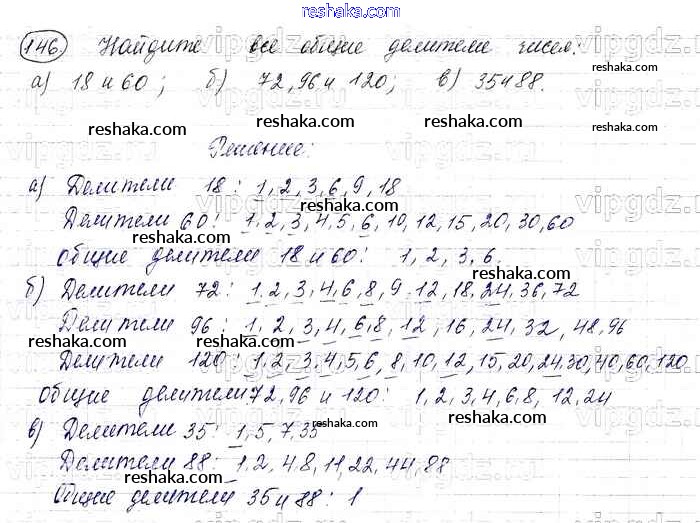 reshaka.com
146. Найдите все общие делители чисел:
а) 18 и 60; б) 72, 96 и 120; в) 35 и 88.
reshaka.com reshaka.com reshaka.com
Решение:
а) Делители 18: 1, 2, 3, 6, 9, 18
Делители 60: 1, 2, 3, 4, 5, 6, 10, 12, 15, 20, 30, 60
reshaka.com reshaka.com
общие делители 18 и 60: 1, 2, 3, 6.
reshaka.com
б) Делители 72: 1, 2, 3, 4, 6, 8, 9, 12, 18, 24, 36, 72
reshaka.com
Делители 96: 1, 2, 3, 4, 6, 8, 12, 16, 24, 32, 48, 96
reshaka.com reshaka.com
Делители 120: 1, 2, 3, 4, 5, 6, 8, 10, 12, 15, 20, 24, 30, 40, 60, 120
reshaka.com
общие делители 72, 96 и 120: 1, 2, 3, 4, 6, 8, 12, 24
reshaka.com
в) Делители 35: 1, 5, 7, 35
reshaka.com
Делители 88: 1, 2, 4, 8, 11, 22, 44, 88
reshaka.com reshaka.com
Общие делители 35 и 88: 1
reshaka.com